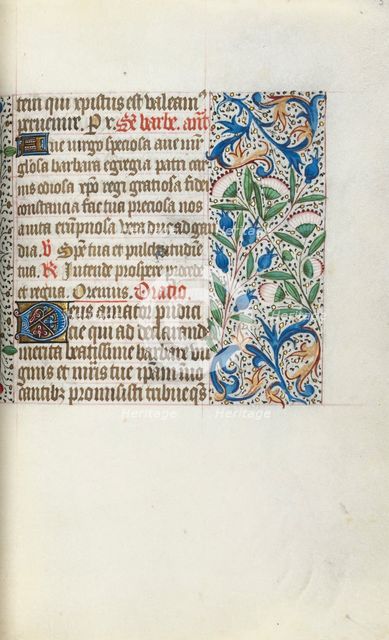 tein qui xpistus est valeam⁹
peruenire. P x Sce barbe. ant.
Aue virgo speciosa aue vir
glosa barbara egregia patri ni
mis odiosa xpo regi gratiosa fidei
constancia factua preciosa nos
tua ad gau
dia. V Spe tua et pulchritudine
tua. R Intende prospere procede
et regna. Oremus. Oratio.
Deus amator pudici
cie qui ad declarand
merita beatissime barbare vir
ginis et mris tue ipam inuo
cantibz promisisti tribue qs
Heritage Heritage